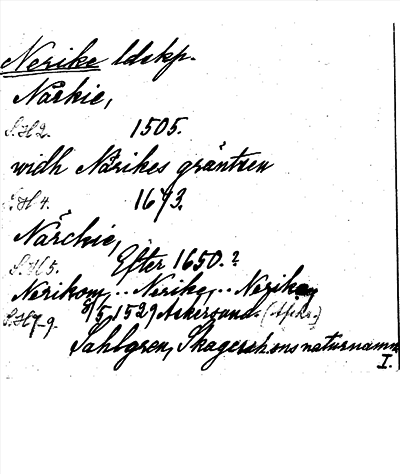 Nerike ldskp.
Närkie,
S.H 2. 1505.
widh Närikes gräntzen
S.H 4. 1673.
Närckie,
S.H 5. Efter 1650.?
Nerikom,.. Nerike,.. Neriken
S.H 7-9. 8/5 1529 Askersund.
Sahlgren, Skagershons naturnamn
I.